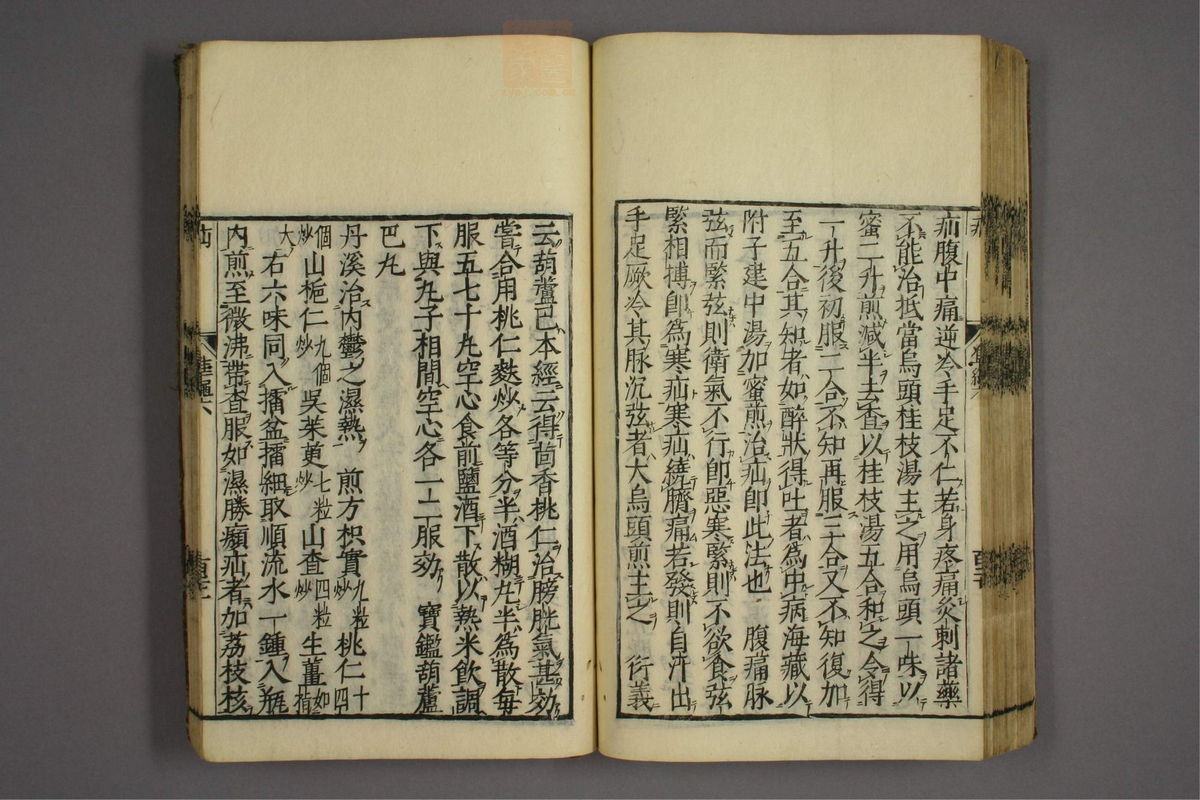 疝腹中痛逆冷手足不仁若身疼痛灸刺諸藥
不能治抵當烏頭桂枝湯主之用烏頭一味以
蜜二升煎減半去査以桂枝湯五合和之令得
一升後初服二合不知再服三合又不知復加
至五合其知者如醉狀得吐者爲中病海藏以
附子建中湯加蜜煎治疝即此法也　腹痛脉
弦而緊弦則衛氣不行即惡寒緊則不欲食弦
緊相搏即爲寒疝寒疝繞臍痛若發則自汗出
手足厥冷其脉沉弦者大烏頭煎主之　衍義
云葫蘆巴本經云得茴香桃仁治膀胱氣甚効
嘗合用桃仁麩炒各等分半酒糊丸半爲散每
服五七十丸空心食前鹽酒下散以熱米飲調
下與丸子相間空心各一二服効　寶鑑葫蘆
巴丸
丹溪治内鬱之濕熱　煎方枳實九粒炒桃仁十四
個炒山梔仁九個炒吳茱萸七粒炒山査四粒炒生薑如指
大右六味同入擂盆擂細取順流水一鍾入瓶
内煎至微沸帶査服如濕勝㿗疝者加荔枝核
疝